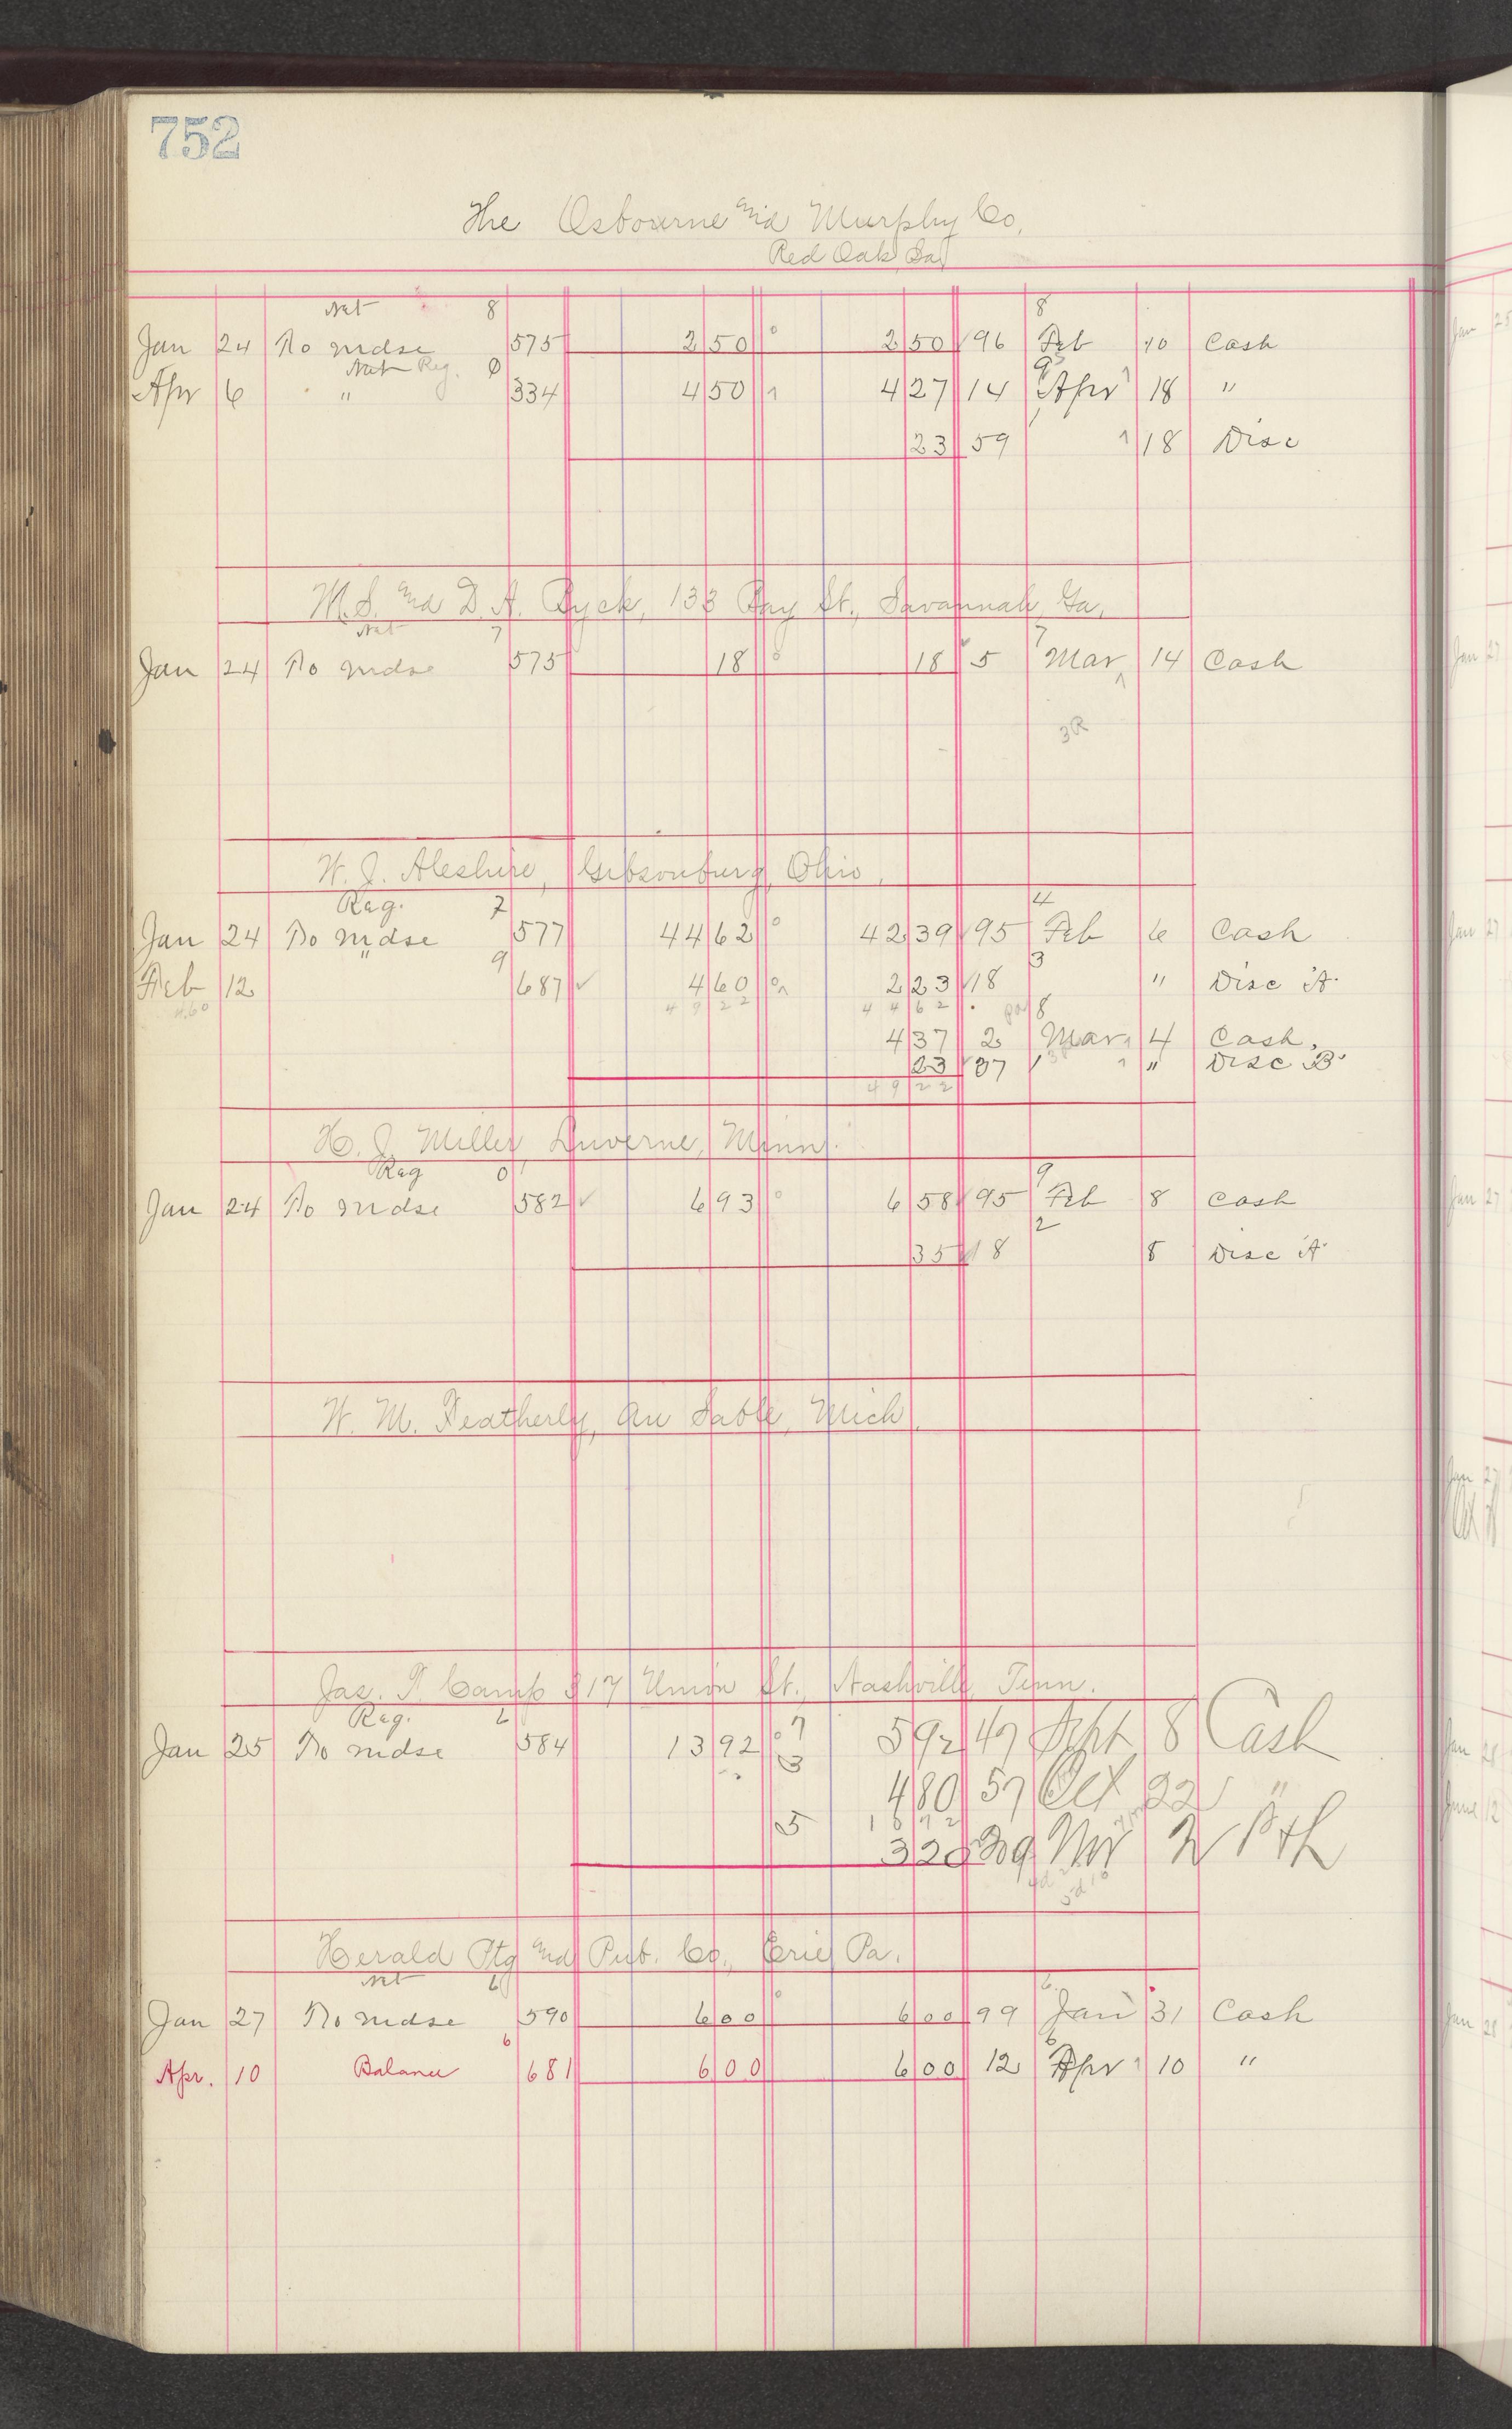 752
The Osbourne and Murphy Co,
Red Oak, Ga
Net 8 8
Jan 24 To mdse 575 2 50 0 2 50 96 Feb 10 Cash
Net Reg. 0 9
Apr 6 " 334 4 50 1 4 27 14 Apr 18 "
23 59 18 Disc
M. S. and D. A. Byck, 133 Bay St., Savannah, Ga,
Net 7 7
Jan 24 To mdse 575 18 0 18 5 Mar 14 Cash
3R
W. J. Aleshire, Gibsonburg, Ohio,
Reg. 7 4
Jan 24 To mdse 577 44 62 0 42 39 95 Feb 6 Cash
" 9 3
Feb 12 687 4 60 0 2 23 18 " Disc A
4.60 49 22 44 62 8
4 37 2 Mar 4 Cash,
23 37 " Disc B
49 22
H. J. Miller, Luverne, Minn.
Reg 0 9
Jan 24 To mdse 582 6 93 0 6 58 95 Feb 8 Cash
2
35 18 8 Disc A
W. M. Featherly, Au Sable, Mich.
Jas. T. Camp 317 Union St., Nashville, Tenn.
Reg. 6
Jan 25 To mdse 584 13 92 0 7 5 92 47 Sept 8 Cash
3 4 80 57 Oct 22 "
5 3 20 Nov
Herald Ptg and Pub. Co., Erie, Pa.
Net 6 6
Jan 27 To mdse 590 6 00 0 6 00 99 Jan 31 Cash
6 6
Apr. 10 Balance 681 6 00 6 00 12 Apr 10 "